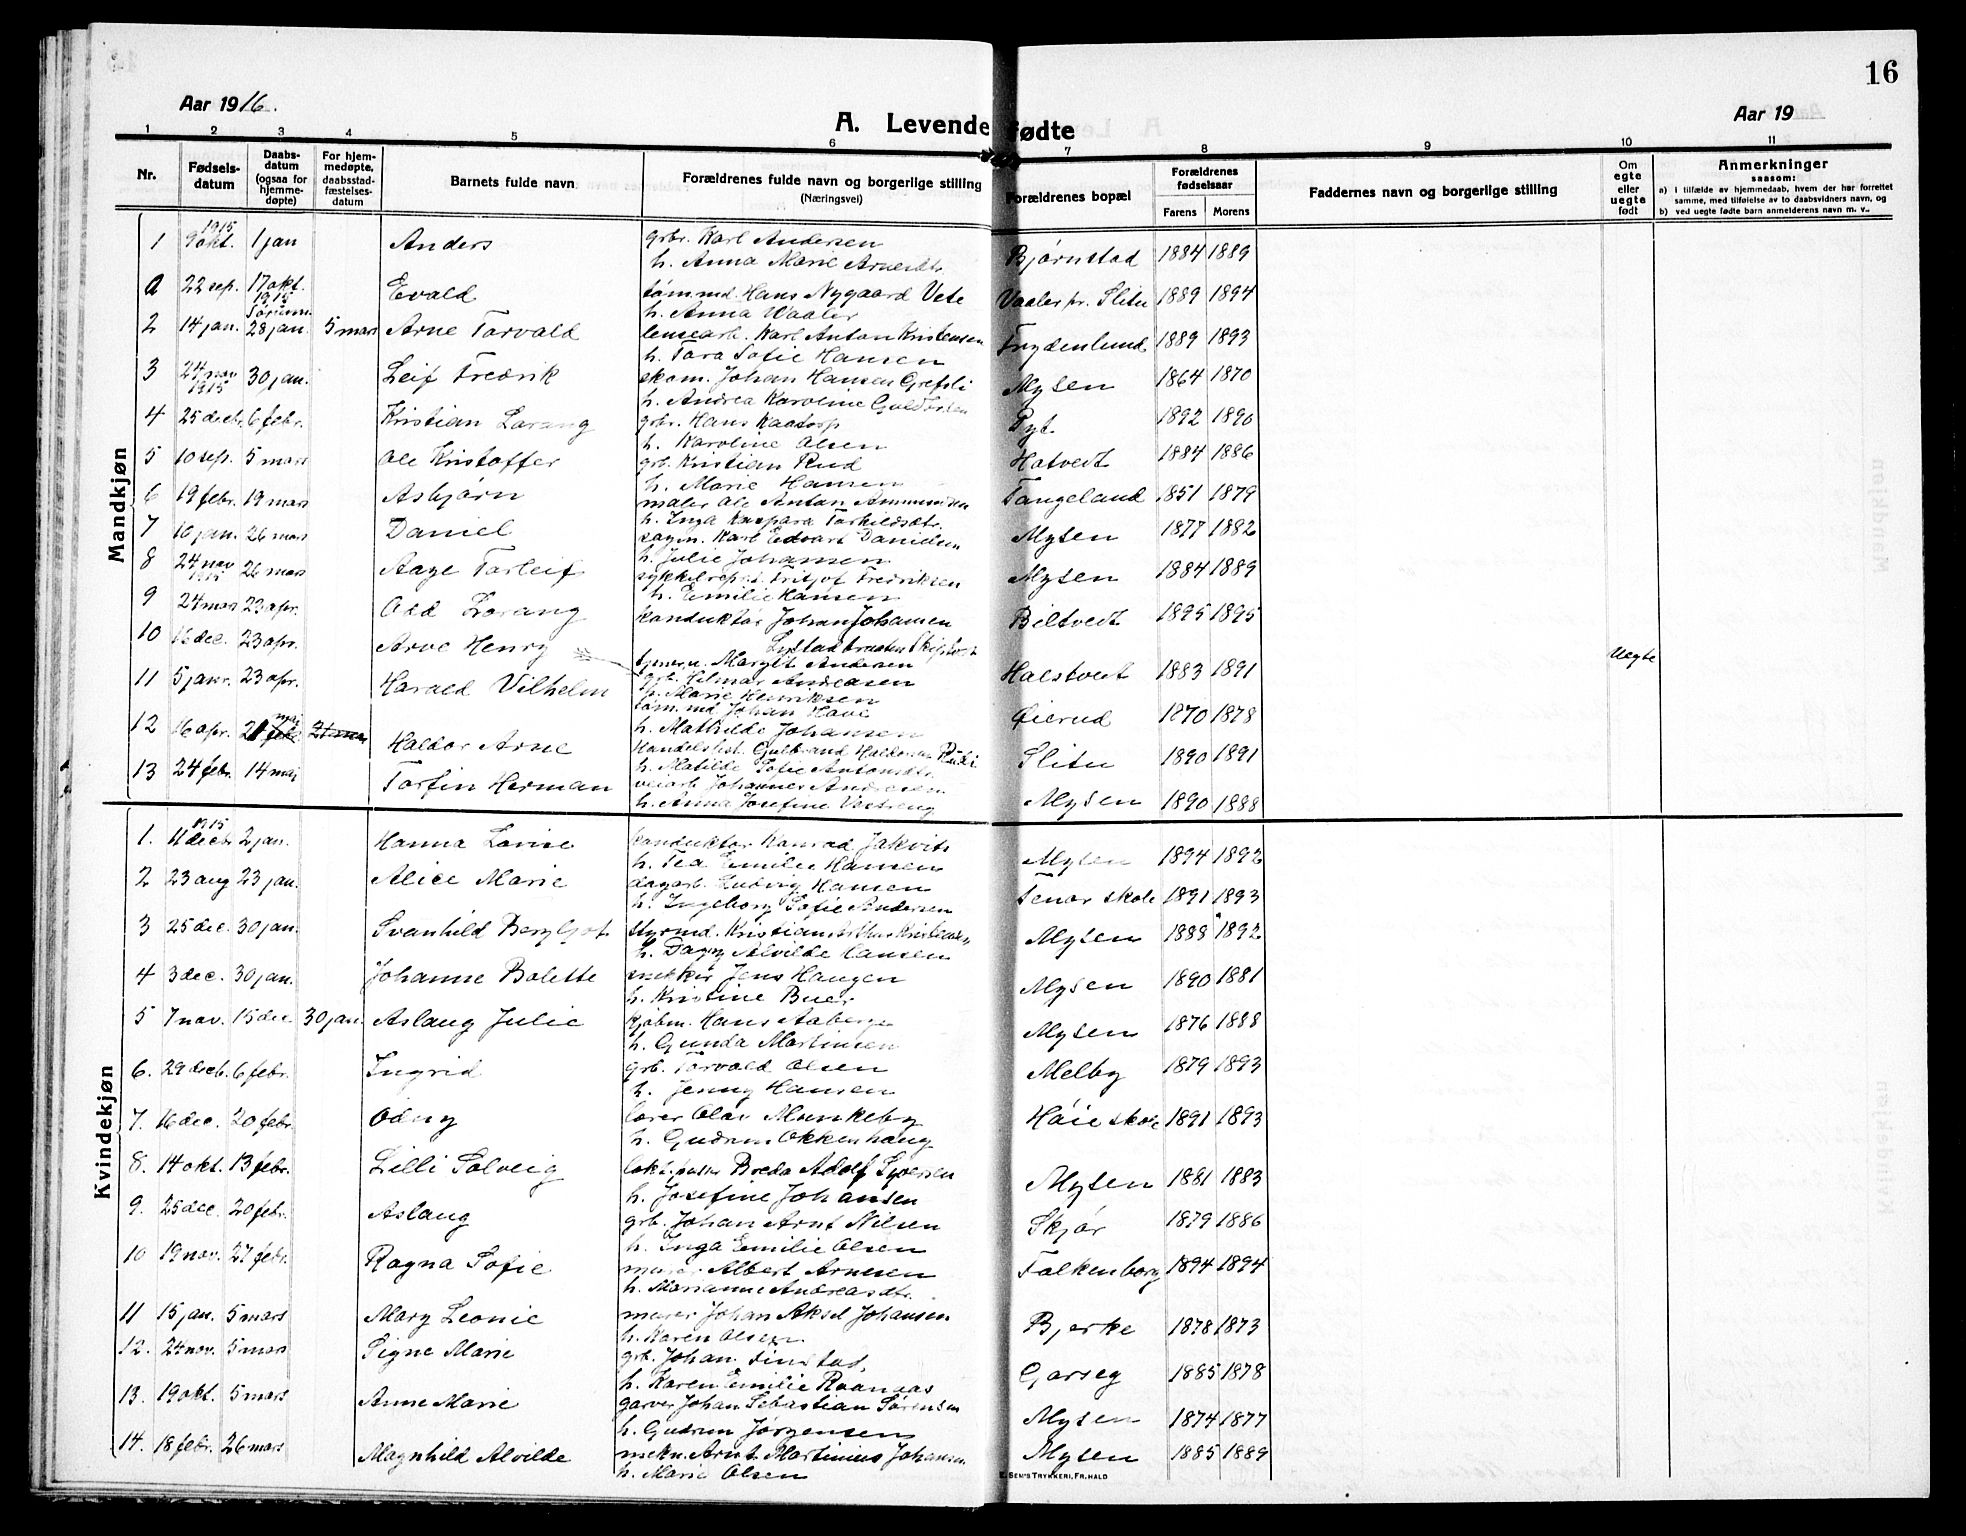 16
Aar 1916.
Aar 19
A. Levende fødte
1 2 3 4 5 6 7 8 9 10 11
Nr.
Fødsels-datum
Daabs-datum (ogsaa for hjemme-døpte)
For hjem-medøpte, daabsstad-fæstelses-datum
Barnets fulde navn
Forældrenes fulde navn og borgerlige stilling (Næringsvei)
Forældrenes bopæl
Forældrenes fødselsaar
Farens Morens
Faddernes navn og borgerlige stilling
Om egte eller uegte født
Anmerkninger
saasom:
a) i tilfælde av hjemmedaab, hvem der har forrettet samme, med tilføielse av to daabsvidners navn, og
b) ved uegte fødte barn anmelderens navn m. v..
Mandkjøn
1 1915 9 okt. 1 jan Anders grbr. Karl Andersen Bjørnstad 1884 1889
h. Anna Marie Arnesdtr.
a 22 sep. 17 okt. 1915 Evald tømmd. Hans Nygaard Vete Vaaler pr. Slitu 1889 1894
h. Anna Vaaler
2 14 jan. 28 jan. 5 mars Arne Torvald lensearb. Karl Anton Kristensen Frydenlund 1889 1893
h. Tora Sofie Hansen
3 24 nov 1915 30 jan. Leif Fredrik skom. Johan Hansen Grefsli Mysen 1864 1870
h. Andrea Karoline
4 25 decbr. 6 febr. Kristian Lorang grbr. Hans Kaatorp Pyt. 1892 1890
h. Karoline Olsen
5 10 sep. 5 mars Ole Kristoffer grb. Kristian Rud Hotvedt 1884 1886
h. Marie Hansen
6 19 febr. 19 mars Asbjørn maler Ole Anton Ammundsen Tangeland 1851 1879
h. Inga Kaspara Torkildsdtr.
7 16 jan. 26 mars Daniel sagm. Karl Edvart Danielsen Mysen 1877 1882
h. Julie Johansen
8 24 nov 1915 26 mars Aage Torleif sykkelrep. Fritjof Fredriksen Mysen 1884 1889
h. Emilie Hansen
9 24 mars 23 apr. Odd Lorang konduktør Johan Johansen Biltvedt 1895 1895
10 dec. 23 apr. Arve Henry
tjener. u. Margit Andersen Halstvedt 1883 1891 Uegte
11 5 janr. 23 apr. Harald Vilhelm grb. Hilmar Andreasen
h. Marie Henriksen
12 16 apr. 21 mai Haldor Arne tøm.md Johan Have Øierud 1870 1878
h. Mathilde Johansen
Handelsbst. Gulbrand Haldorsen Rudi Slitu 1890 1891
h. Matilde Sofie Antonsdtr.
13 24 febr. 14 mai Torfin Herman veiarb Johannes Andresen Mysen 1890 1888
h. Anna Josefine Vestreng
Kvindekjøn
1. 1915 11 decbr 2 jan. Hanna Lovise konduktør Konrad Jakvits Mysen 1894 1892
h. Tea Emilie Hansen
2 23 aug 23 jan. Alice Marie dagarb. Ludvig Hansen Tenor skole 1891 1893
h. Ingeborg Sofie Andersen
3 25 dec. 30 jan. Svanhild Bergljot styrmd. Kristian Arthur Kristiansen Mysen 1888 1892
h. Dagny Alvilde Hansen
4 3 dec. 30 jan. Johanne Bolette snekker Jens Haugen Mysen 1890 1881
h. Kristine Buer
5 7 nov. 15 dec 30 jan. Aslaug Julie kjøbm. Hans Aaberge Mysen 1876 1888
h. Gunda Martinsen
6. 29 decb. 6 febr. Ingrid grb. Torvald Olsen Melby 1879 1893
h. Jenny Hansen
7. 16 dec. 20 febr. Odny lærer Olav Munkeby Høie skole 1891 1893
h. Gudrun Okkenhaug
8. 14 okt. 13 febr. Lilli Solveig lok.pusser Breda Adolf Syversen Mysen 1881 1883
h. Josefine Johansen
9. 25 dec. 20 febr. Aslaug grb. Johan Arnt Nilsen Skjør 1879 1886
h. Inga Emilie Olsen
10 19 nov. 27 febr. Ragna Sofie murer Albert Arnesen Falkenborg 1894 1894
h. Marianne Andreasdtr.
11 15 jan. 5 mars Mary Leonie murer Johan Aksel Johansen Bjerke 1878 1873
h. Karen Olsen
12. 24 nov. 5 mars Signe Marie grb. Johan Finstad, Garseg 1885 1878
h. Karen Emilie Raanaas
13. 19 okt. 5 mars Anne Marie garver Johan Sebastian Sørensen Mysen 1874 1877
h. Gudrun Jørgensen
14. 18 febr. 26 mars Magnhild Alvilde mekn. Arnt Martinius Johansen Mysen 1885 1889
h. Marie Olsen
SEN'S TRYKKERI, FR.HALD